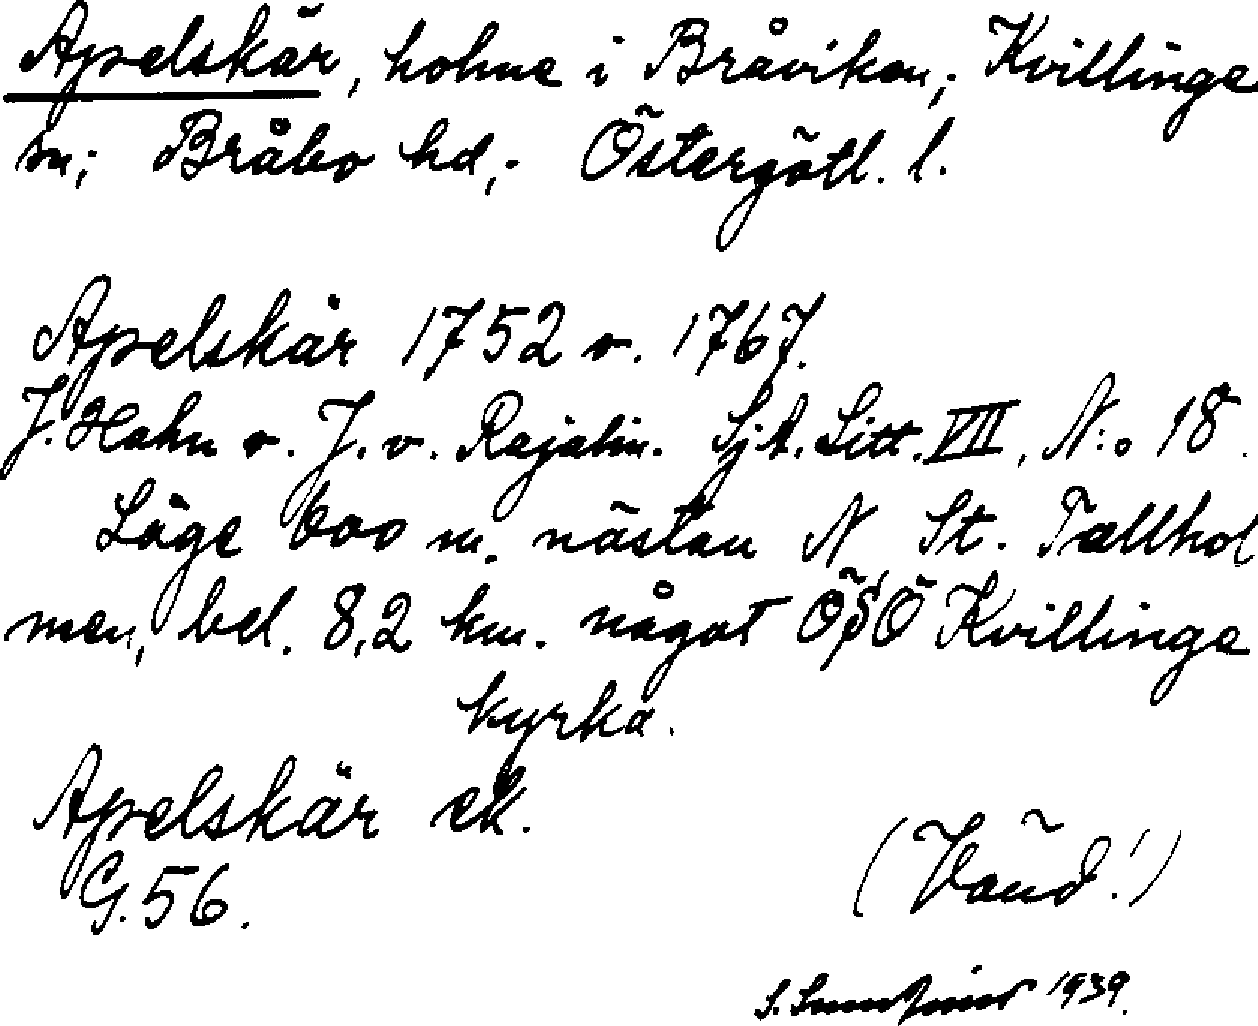 Apelskär, holme i Bråviken; Kvillinge
sn; Bråbo hd; Östergötl. l.
Apelskär 1752 o. 1767.
J. Hahn o. J. v. Rajalin. Sjk. Litt. VIII, N:o 18.
Läge 600 m. nästan N St. Tallhol
men, bel. 8,2 km. något ÖSÖ Kvillinge
kyrka.
Apelskär ek.
G. 56.
(Vänd!)
S. 1939.